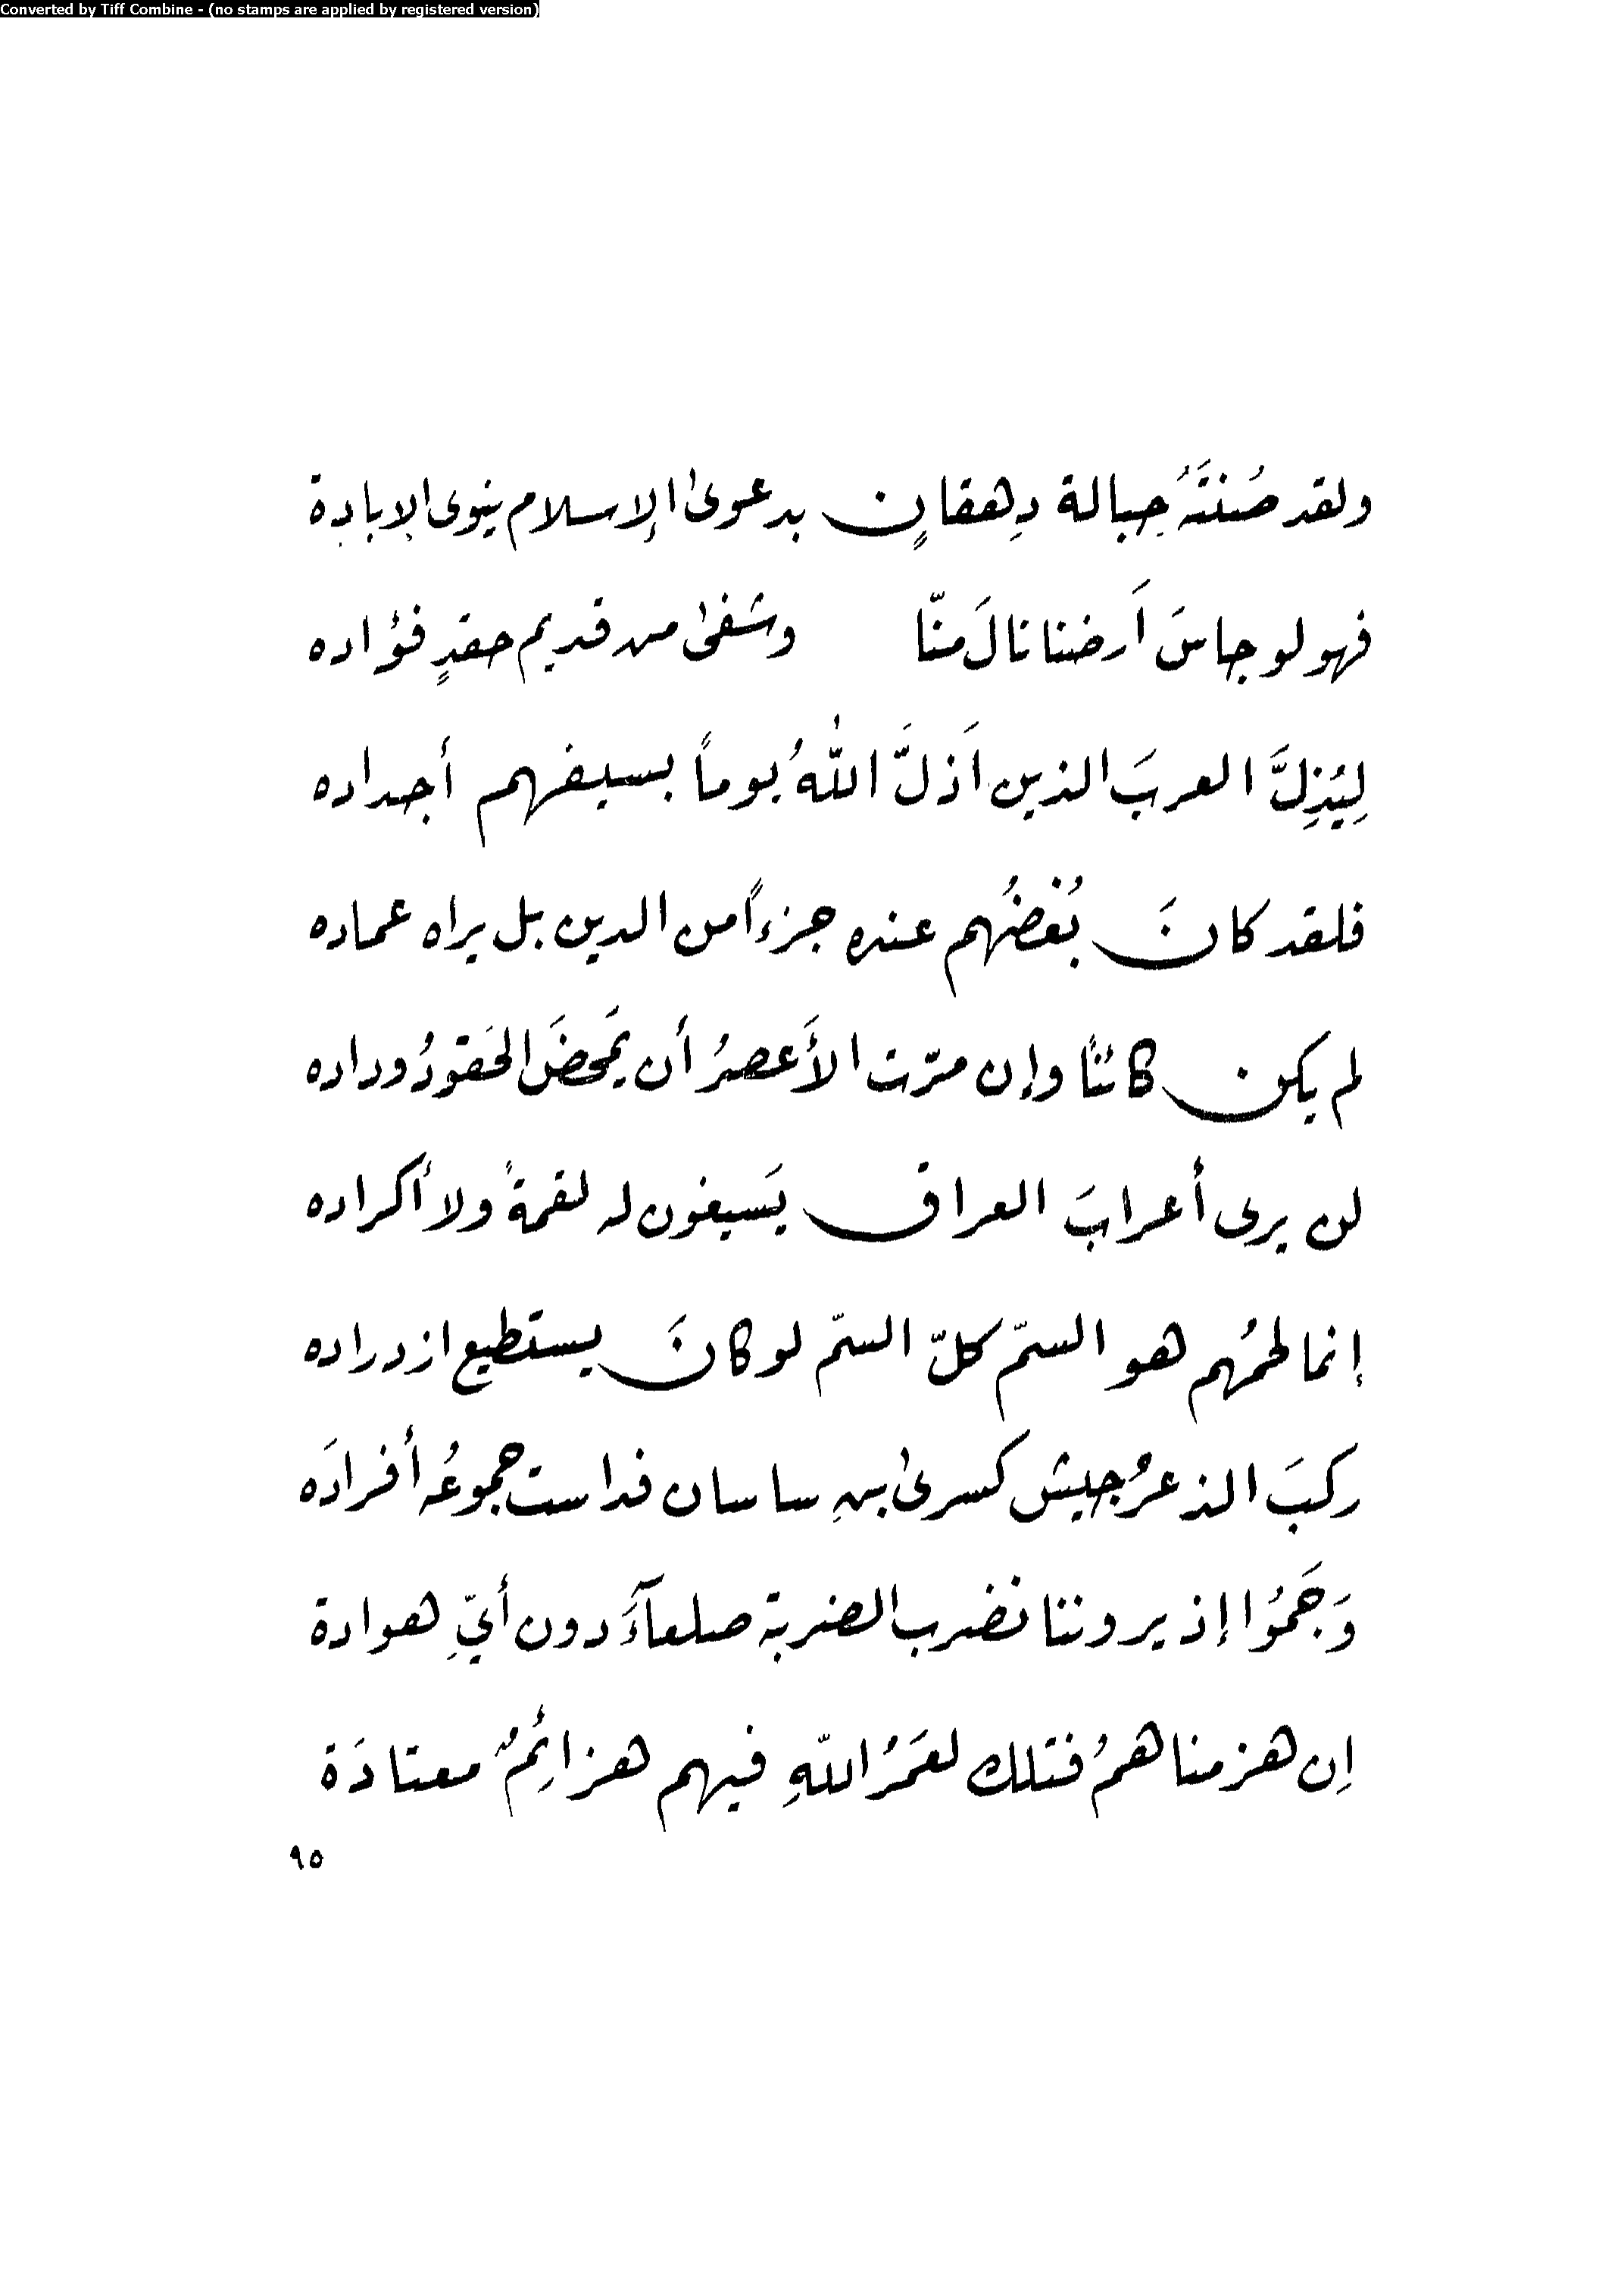 Converted by Tiff Combine - (no stamps are applied by registered version)
ولقد صُنتَهُ حِبالة دِهقانٍ بدعوىٰ الإسلام ينوى الإبادة
فهو لو جاسَ اَرضنا نالَ منّا وشفىٰ من قديم حقدٍ فؤاده
لِيُذِلَّ العربَ الذين اَذلَّ اللهُ يوماً بسيفهم أجداده
فلقد كانَ بُغضُهم عنده جزءاً من الدين بل يراه عماده
لم يكن كائناً وإن مرّت الأَعصرُ أن يَمحضَ الحَقودُ وداده
لن يرى أعرابَ العراق يَسيغون له لقمةً ولا أكراده
إنما لحمُهم هو السمّ كلّ السمّ لو كانَ يستطيع ازدراده
ركبَ الذعرُ جيش كسرىٰ بنِ ساسان فداست جموعُه أفرادَه
وَجَمُوا إذ يروننا نضرب الضربة صلعآءَ دون أيِّ هوادة
اِن هزمناهمُ فتلك لعَمَرُ اللّهِ فيهم هزائِمٌ معتادَة
٩٥